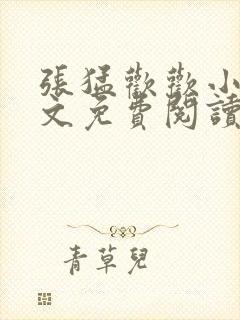 張猛歡歡小
文免費閱讀
青草兒